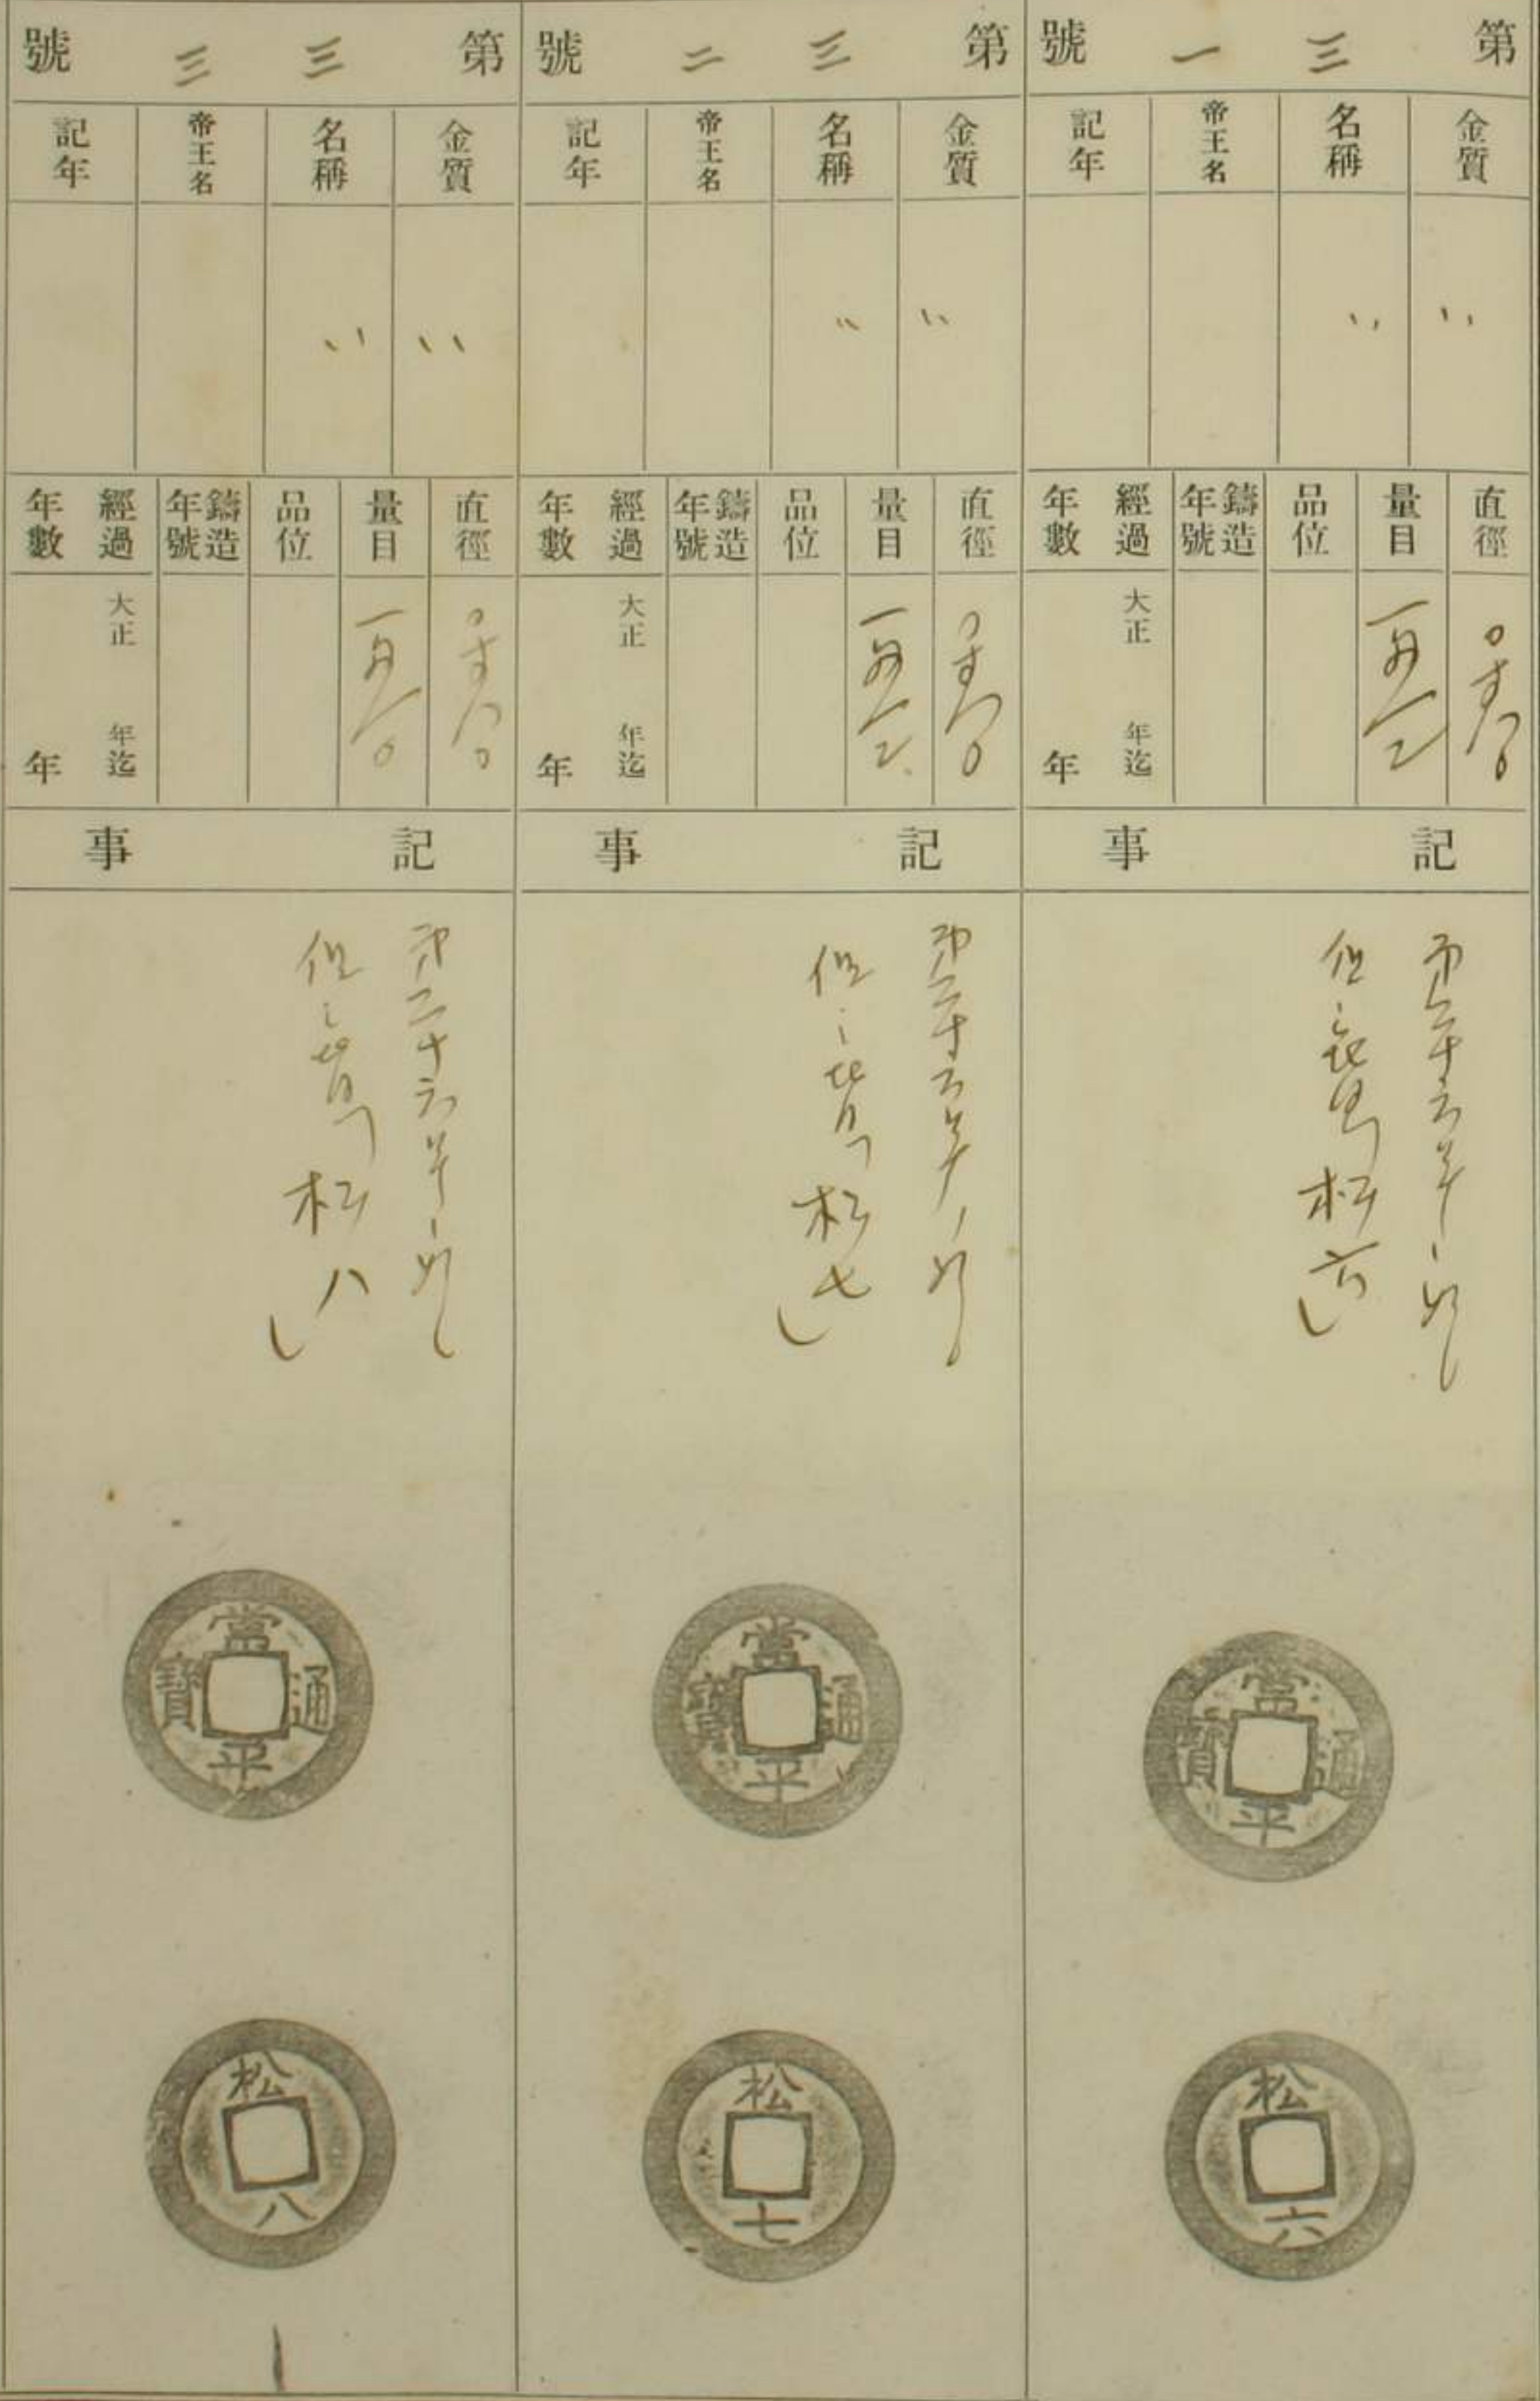 第三一號
金質
名稱
帝王名
記年
〃
〃
直徑
量目
品位
鑄造年號
經過年數
大正 年迄
年
記事
第二十六号ノ如シ
但シ背ニ松六
當平通寶
松六
第三二號
金質
名稱
帝王名
記年
〃
〃
直徑
量目
品位
鑄造年號
經過年數
大正 年迄
年
記事
第二十六号ノ如シ
但シ背ニ松七
當平通寶
松七
第三三號
金質
名稱
帝王名
記年
〃
〃
直徑
量目
品位
鑄造年號
經過年數
大正 年迄
年
記事
第二十六号ノ如シ
但シ背ニ松八
當平通寶
松八